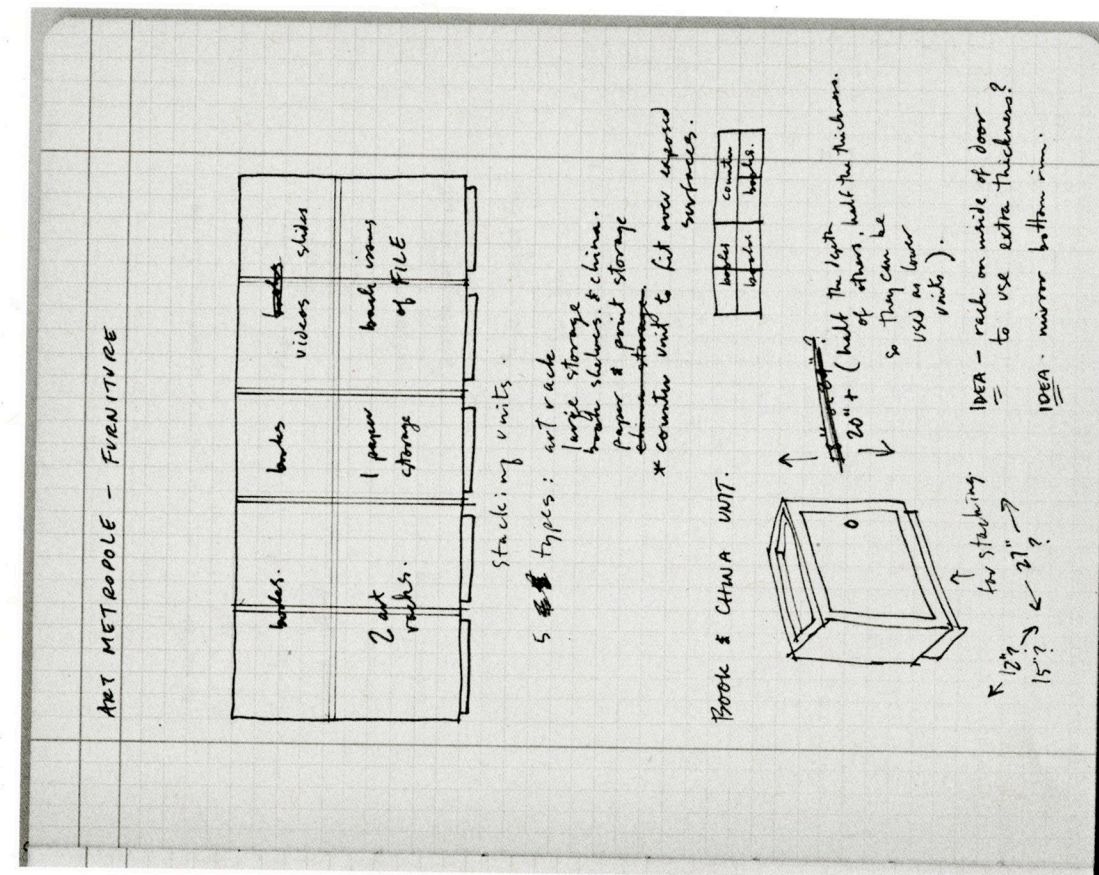 ART METROPOLE – FURNITURE
books. books videos books slides
2 art racks. 1 paper storage back issues of FILE
stacking units.
5 types: art rack
large storage
book shelves. & china.
paper & print storage
china storage.
* counter unit to fit over exposed
surfaces.
books counter
books books.
BOOK & CHINA UNIT.
20"+ (half the depth
of others, half the thickness.
so they can be
used as lower
units).
for stacking
12"?
15"?
27"
?
IDEA – rack on inside of door
to use extra thickness?
IDEA. mirror bottom rim.